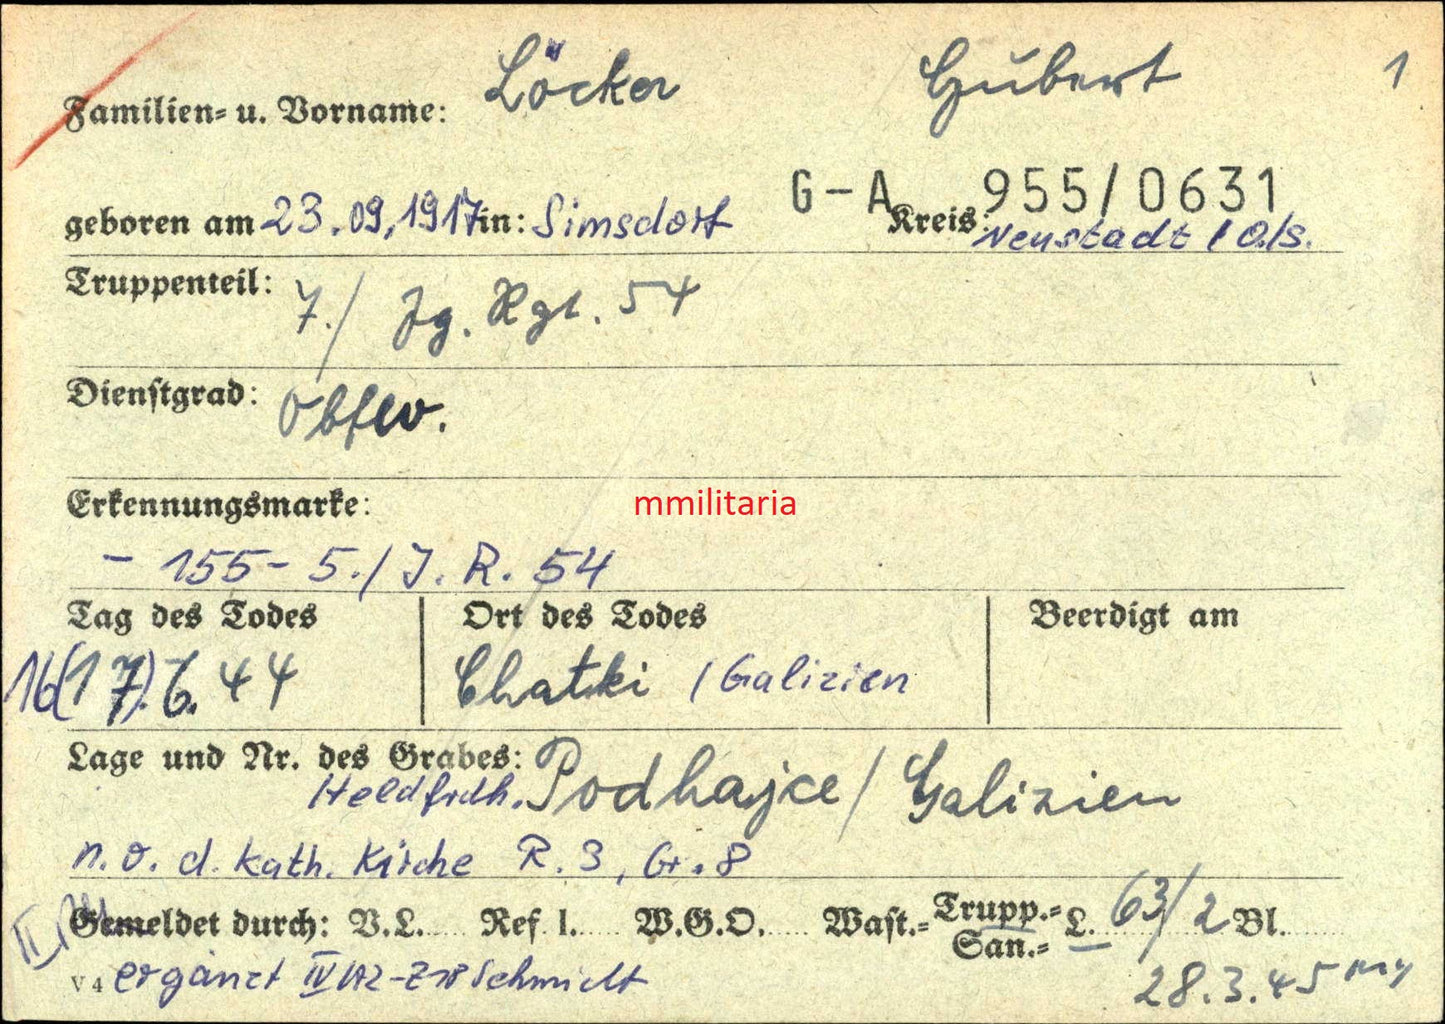 Familien- u. Vorname: Löcker Hubert 1
G-A 955/0631
geboren am 23.09.1917 in: Simsdorf Kreis: Neustadt / O/S.
Truppenteil: 7./ Jg. Rgt. 54
Dienstgrad: Obfw.
Erkennungsmarke:
mmilitaria
- 155 - 5./ J. R. 54
Tag des Todes Ort des Todes Beerdigt am
16(17).6.44 Chatki / Galizien
Lage und Nr. des Grabes: Podhajce / Galizien
Heldfrdh.
n. ö. d. kath. Kirche R. 3, Gr. 8
Gemeldet durch: V.L. Ref I. W.G.O. Wast.- Trupp.- San.- L. 63/2 Bl.
V 4 ergänzt Schmidt 28.3.45